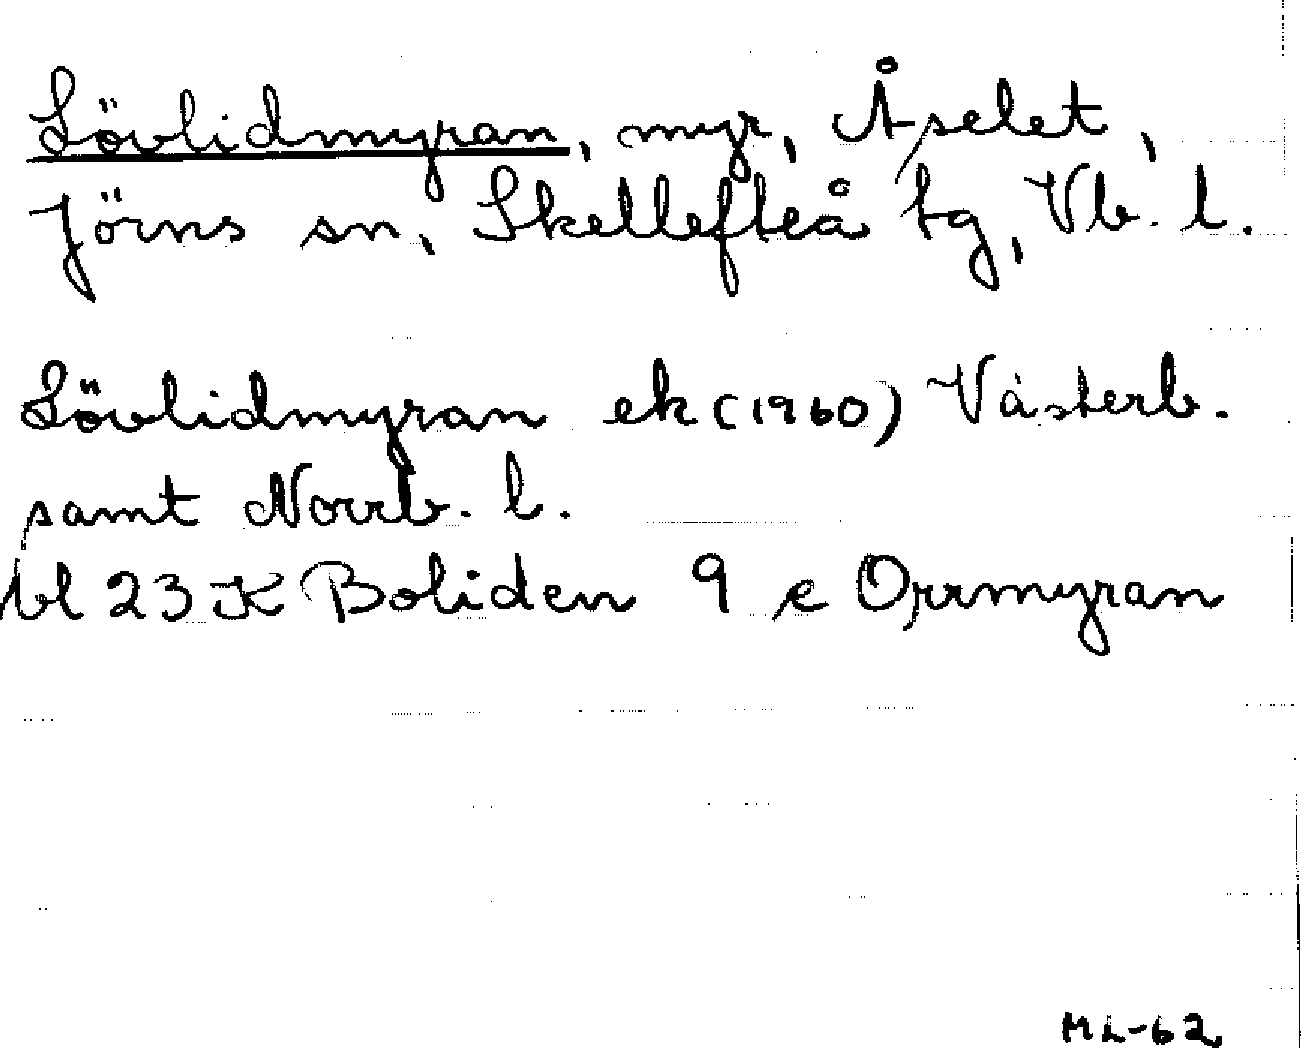 Lövlidmyran, myr, Åselet,
Jörns sn, Skellefteå tg, Vb. l.
Lövlidmyran ek (1960) Västerb.
samt Norrb. l.
bl 23 K Boliden 9 e Orrmyran
ML-62